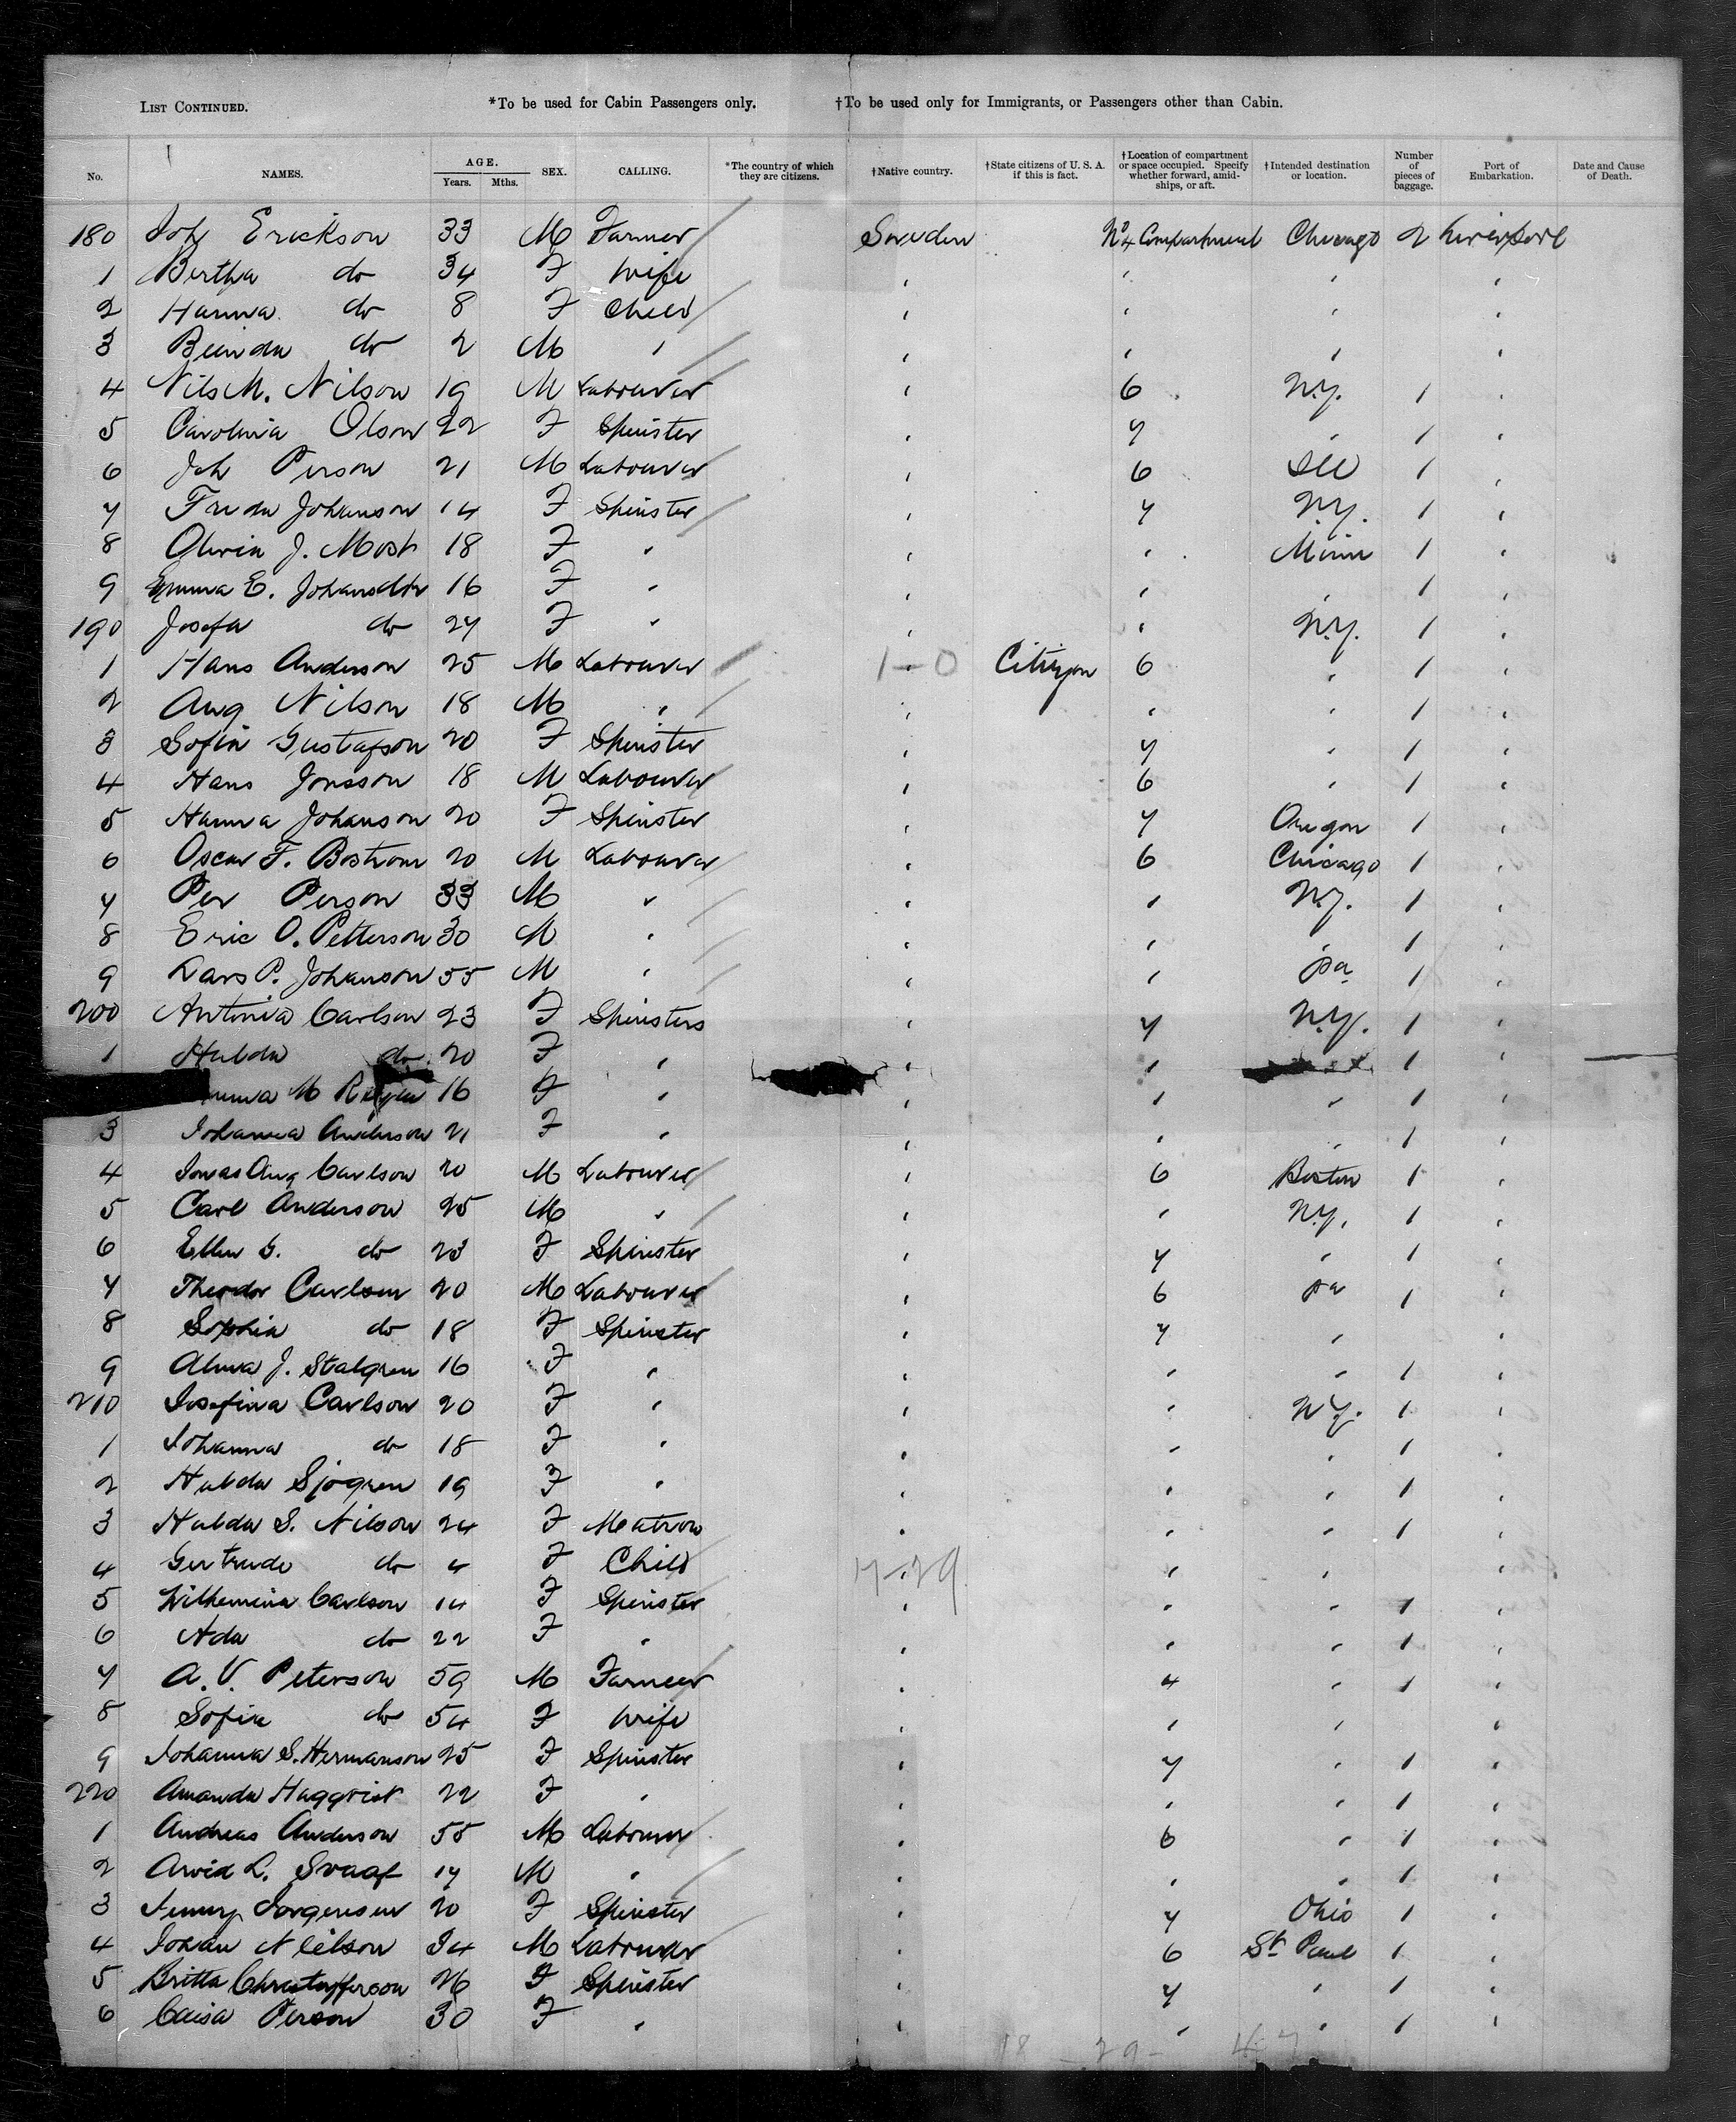 LIST CONTINUED. *To be used for Cabin Passengers only. †To be used only for Immigrants, or Passengers other than Cabin.
No. NAMES. AGE. Years. Mths. SEX. CALLING. *The country of which they are citizens. †Native country. †State citizens of U. S. A. if this is fact. †Location of compartment or space occupied. Specify whether forward, amidships, or aft. †Intended destination or location. Number of pieces of baggage. Port of Embarkation. Date and Cause of Death.
180 Joh Erickson 33 M Farmer Sweden No 4 Compartment Chicago 2 Liverpool
1 Bertha do 34 F Wife " " " "
2 Hanna do 8 F Child " " " "
3 do 2 M " " " " "
4 Nils M. Nilson 19 M Labourer " 6 N.Y. 1 "
5 Carolina Olson 22 F Spinster " 7 " 1 "
6 Joh Person 21 M Labourer " 6 Ill 1 "
7 Frida Johanson 14 F Spinster " 7 N.Y. 1 "
8 J. Most 18 F " " " Minn 1 "
9 Emma E. Johansdtr 16 F " " " " 1 "
190 Josefa do 27 F " " " N.Y. 1 "
1 Hans Anderson 25 M Labourer " 1-0 Citizen 6 " 1 "
2 Aug Nilson 18 M " " " " 1 "
3 Sofia Gustafson 20 F Spinster " 7 " 1 "
4 Hans Jonsson 18 M Labourer " 6 " 1 "
5 Hanna Johanson 20 F Spinster " 7 Oregon 1 "
6 Oscar F. Bostrom 20 M Labourer " 6 Chicago 1 "
7 Per Person 33 M " " " N.Y. 1 "
8 Eric O. Petterson 30 M " " " " 1 "
9 Lars P. Johanson 55 M " " " Pa 1 "
200 Antonia Carlson 23 F Spinsters " 7 N.Y. 1 "
1 Hulda do 20 F " " " 1 "
M 16 F " " " " 1 "
3 Johanna Anderson 21 F " " " " 1 "
4 Jonas Aug Carlson 20 M Labourer " 6 Boston 1 "
5 Carl Anderson 25 M " " " N.Y. 1 "
6 Ellen G. do 23 F Spinster " 7 " 1 "
7 Theodor Carlson 20 M Labourer " 6 Pa 1 "
8 Sophia do 18 F Spinster " 7 " "
9 Alma J. Stalgren 16 F " " " " 1 "
210 Josefina Carlson 20 F " " " N.Y. 1 "
1 Johanna do 18 F " " " " 1 "
2 Hulda Sjogren 19 F " " " " 1 "
3 Hulda S. Nilson 24 F Matron " " " 1 "
4 Gertrude do 4 F Child 7-29 " " "
5 Wilhemina Carlson 14 F Spinster " " " 1 "
6 Ada do 22 F " " " " 1 "
7 A. V. Peterson 59 M Farmer " 4 " 1 "
8 Sofia do 54 F Wife " " " "
9 Johanna S. Hermanson 25 F Spinster " 7 " 1 "
220 Amanda Hagqvist 22 F " " " " 1 "
1 Andreas Anderson 55 M Labourer " 6 " 1 "
2 Arvid L. Svaaf 17 M " " " " 1 "
3 Jenny Jorgensen 20 F Spinster " 7 Ohio 1 "
4 Johan Neilson 34 M Labourer " 6 St Paul 1 "
5 Britta Christofferson 26 F Spinster " 7 " 1 "
6 Caisa Person 30 F " " " " 1 "
18 - 29 - 47